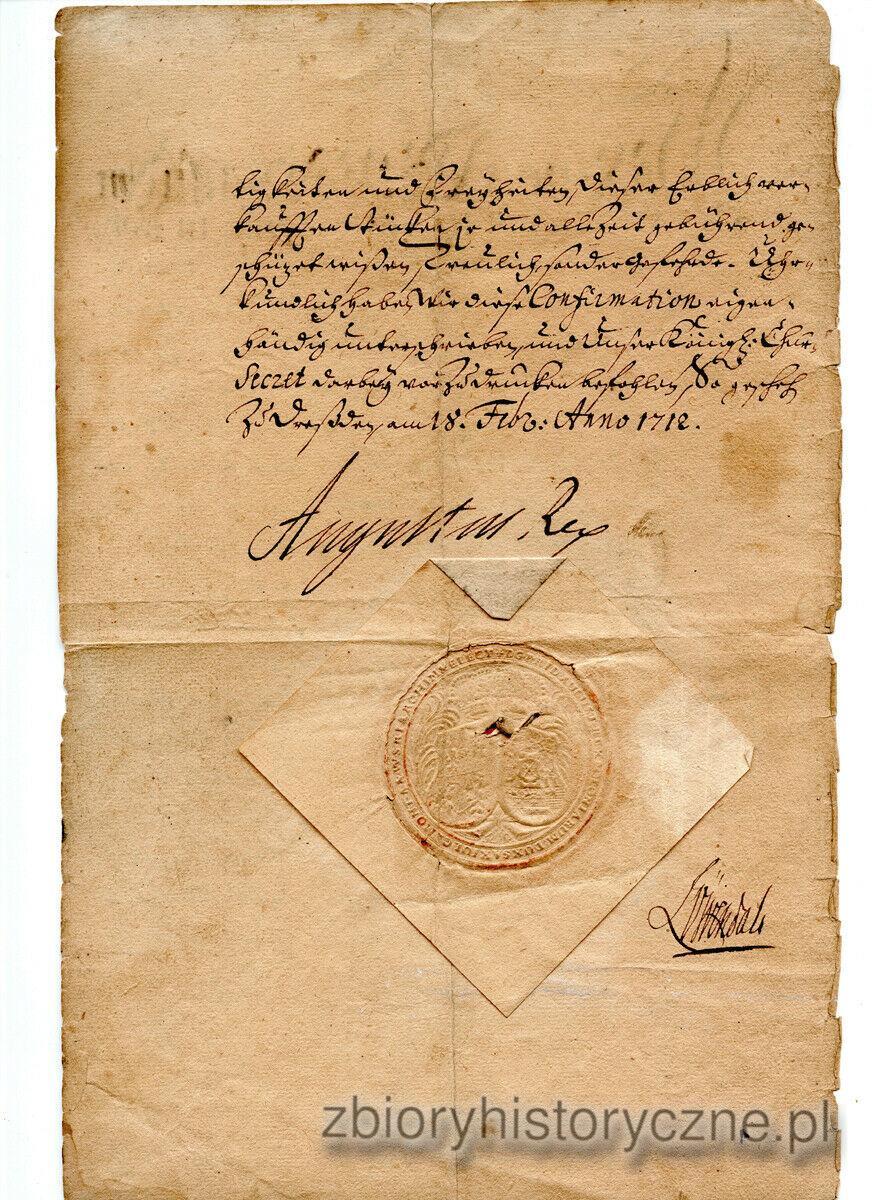 tigkeiten und Freyheiten, dieser Erblich ver-
kaufften Stücken je und alle Zeit gebührend ge-
schüzet wißen, Treulich, sonder Gefehrde. Uhr-
kundlich haben Wir diese Confirmation eigen-
händig unterschrieben, und Unser Königl: Chur-
Secret darbey vorzudrucken befohlen, So gescheh
Zu Dreßden, am 18. Febr: Anno 1712.
Augustus Rex
Löwendal
zbioryhistoryczne.pl